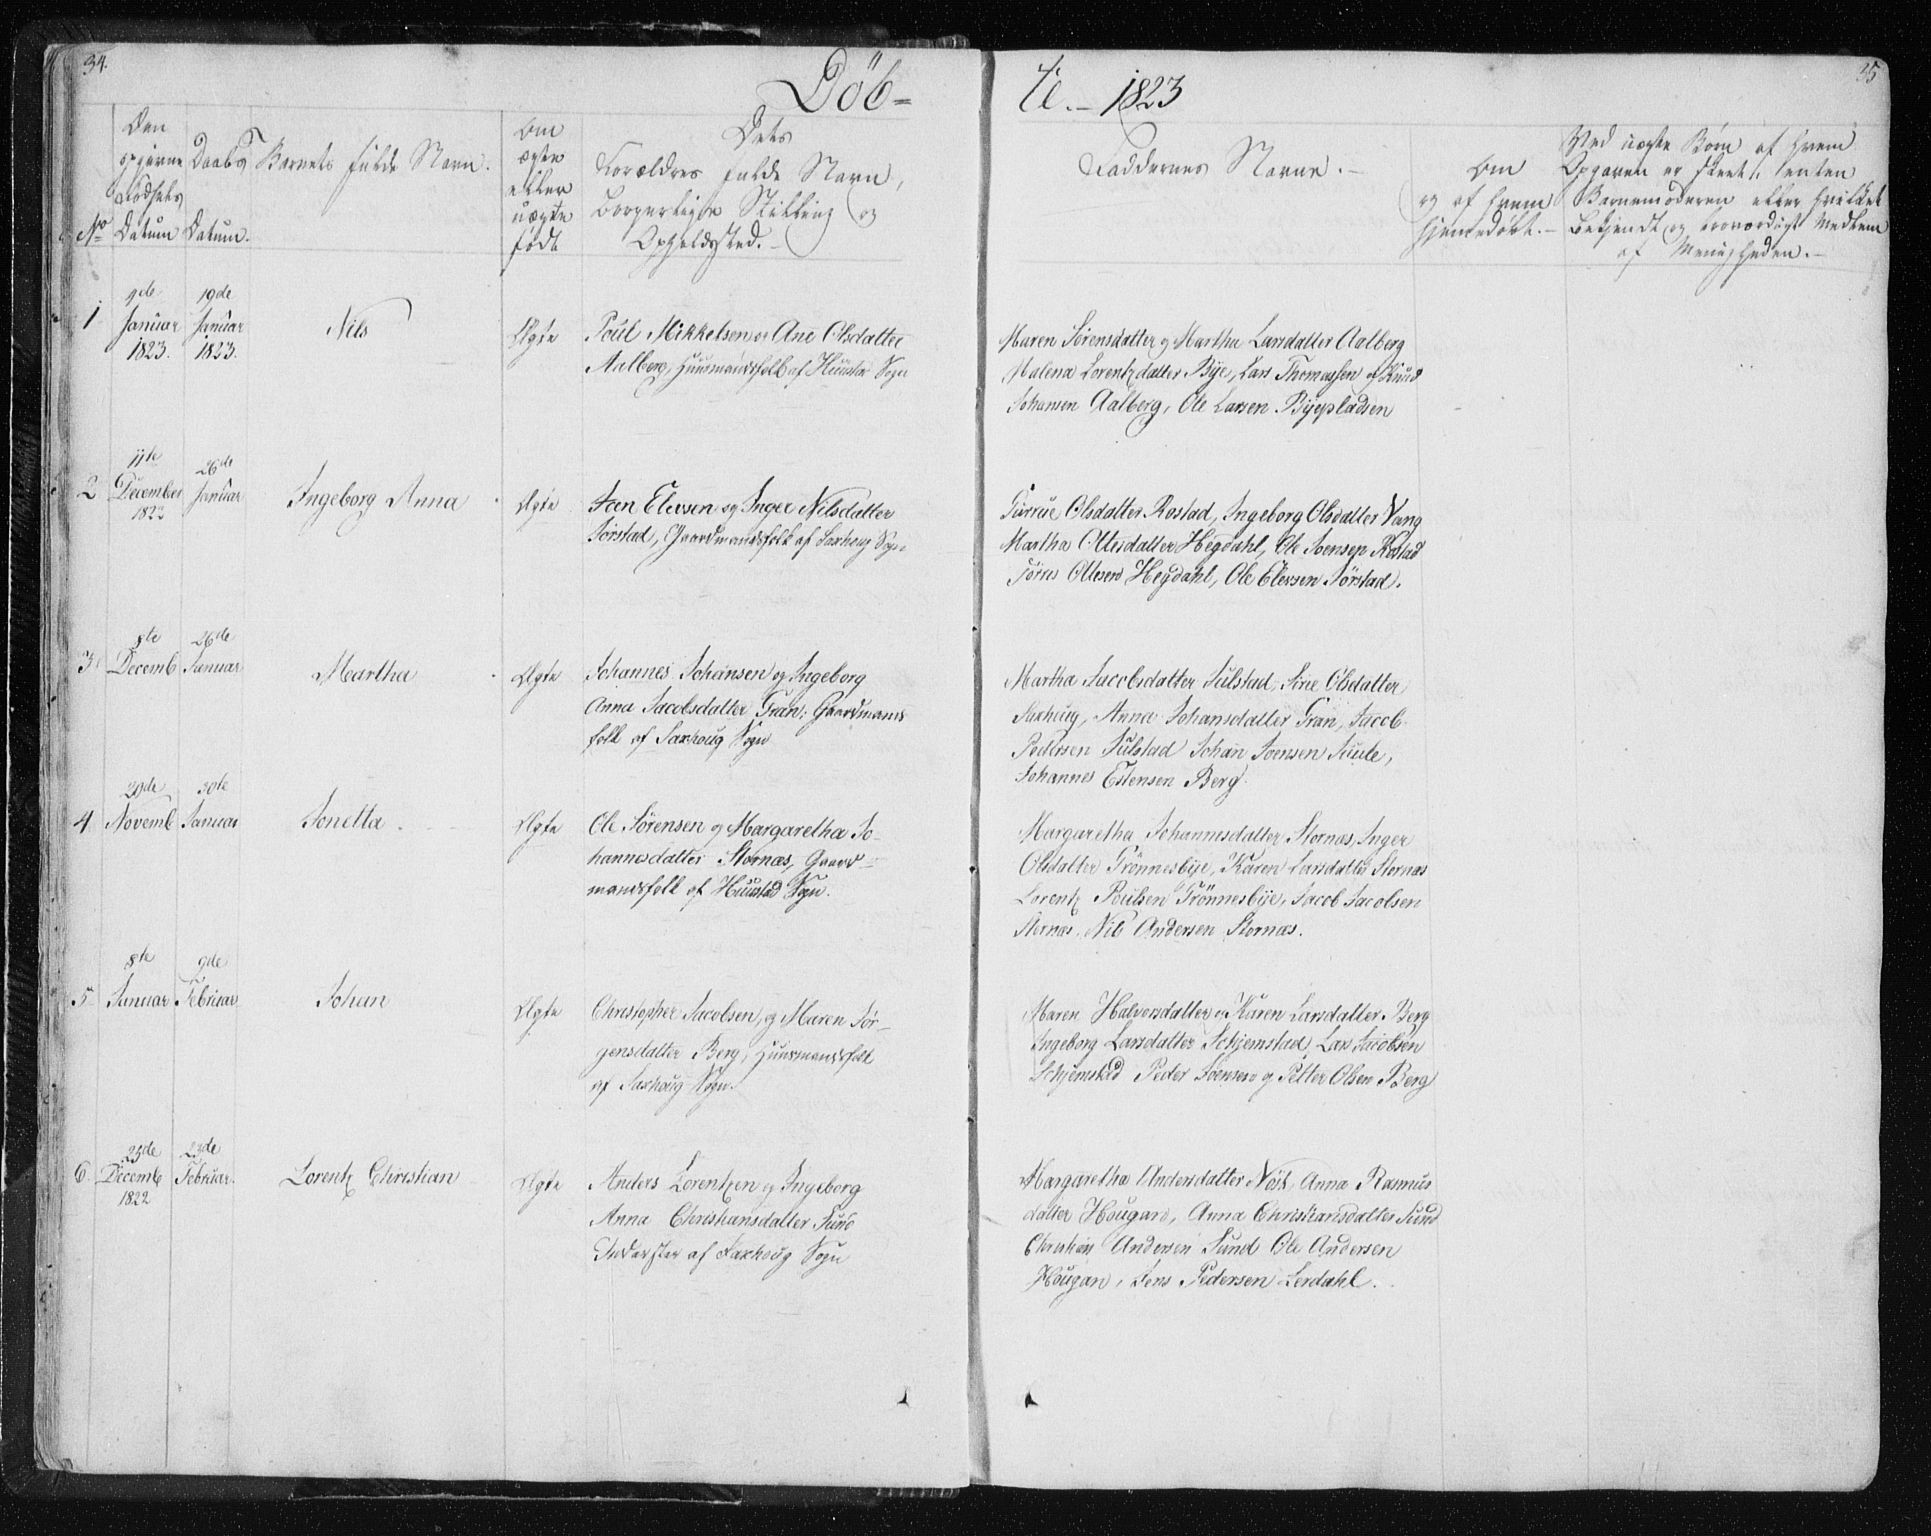 34.
Döb=
te. - 1823
35
No
Den
opgivne
Födsels
Datum
Daabs
Datum.
Barnets fulde Navn.
Om
ægte
eller
uægte
født
Dets
Forældres fulde Navn,
Borgerlige Stilling og
Opholdssted. -
Faddernes Navne. -
Om
og af hvem
hjemmedöbt. -
Ved uægte Börn af hvem
Opgaven er skeet, enten
Barnemoderen eller hvilket
bekjendt og troværdigt Medlem
af Menigheden. -
1
9de
Januar
1823.
19de
Januar
1823.
Nils
Ægte
Poul Mikkelsen og Ane Olsdatter
Aalberg, Huusmandsfolk af Huustad Sogn
Maren Sörensdatter og Martha Larsdatter Aalberg
Malena Lorentzdatter Bye, Lars Thomassen og Knud
Johansen Aalberg, Ole Larsen Byepladsen
2
11te
December
1822
26de
Januar
Ingeborg Anna
Ægte
Joen Elevsen og Inger Nilsdatter
Sörstad, Gaardmandsfolk af Saxhoug Sogn
Olsdatter Rostad, Ingeborg Olsdatter Vang
Martha Ottesdatter Hegdahl, Ole Joensen Rostad
Törres Ottesen Hegdahl, Ole Elevsen Sörstad.
3
8te
Decemb
26de
Januar
Martha
Ægte
Johannes Johansen og Ingeborg
Anna Jacobsdatter Gran, Gaardmands
folk af Saxhoug Sogn
Martha Jacobsdatter Sulstad, Sirie Olsdatter
Saxhoug, Anna Johansdatter Gran, Jacob
Pedersen Sulstad Johan Joensen
Johannes Estensen Berg.
4
Novemb
30te
Januar
Jonetta
Ægte
Ole Sörensen og Margaretha Jo-
hannesdatter Stornæs, Gaard=
mandsfolk af Huustad Sogn.
Margaretha Johannesdatter Stornæs, Inger
Olsdatter Grönnesbye, Karen Larsdatter Stornæs
Lorentz Poulsen Grönnesbye, Jacob Jacobsen
Stornæs, Nils Andersen Stornæs.
5
8te
Januar
9de
Februar
Johan
Ægte
Christopher Jacobsen, og Maren Jör-
gensdatter Berg, Huusmandsfolk
af Saxhoug Sogn.
Maren Halvorsdatter og Karen Larsdatter Berg
Ingeborg Larsdatter Schjemstad, Lars Jacobsen
Schjemstad Peder Joensen og Petter Olsen Berg
6
25de
Decemb
1822
23de
Februar.
Lorentz Christian
Ægte
Anders Lorentzen og Ingeborg
Anna Christiansdatter Sund
Inderster af Saxhoug Sogn
Margaretha Andersdatter Anna Rasmus
datter Hougan, Anna Christiansdatter Sund
Christian Andersen Sund Ole Andersen
Hougan, Jens Pedersen Lerdahl.